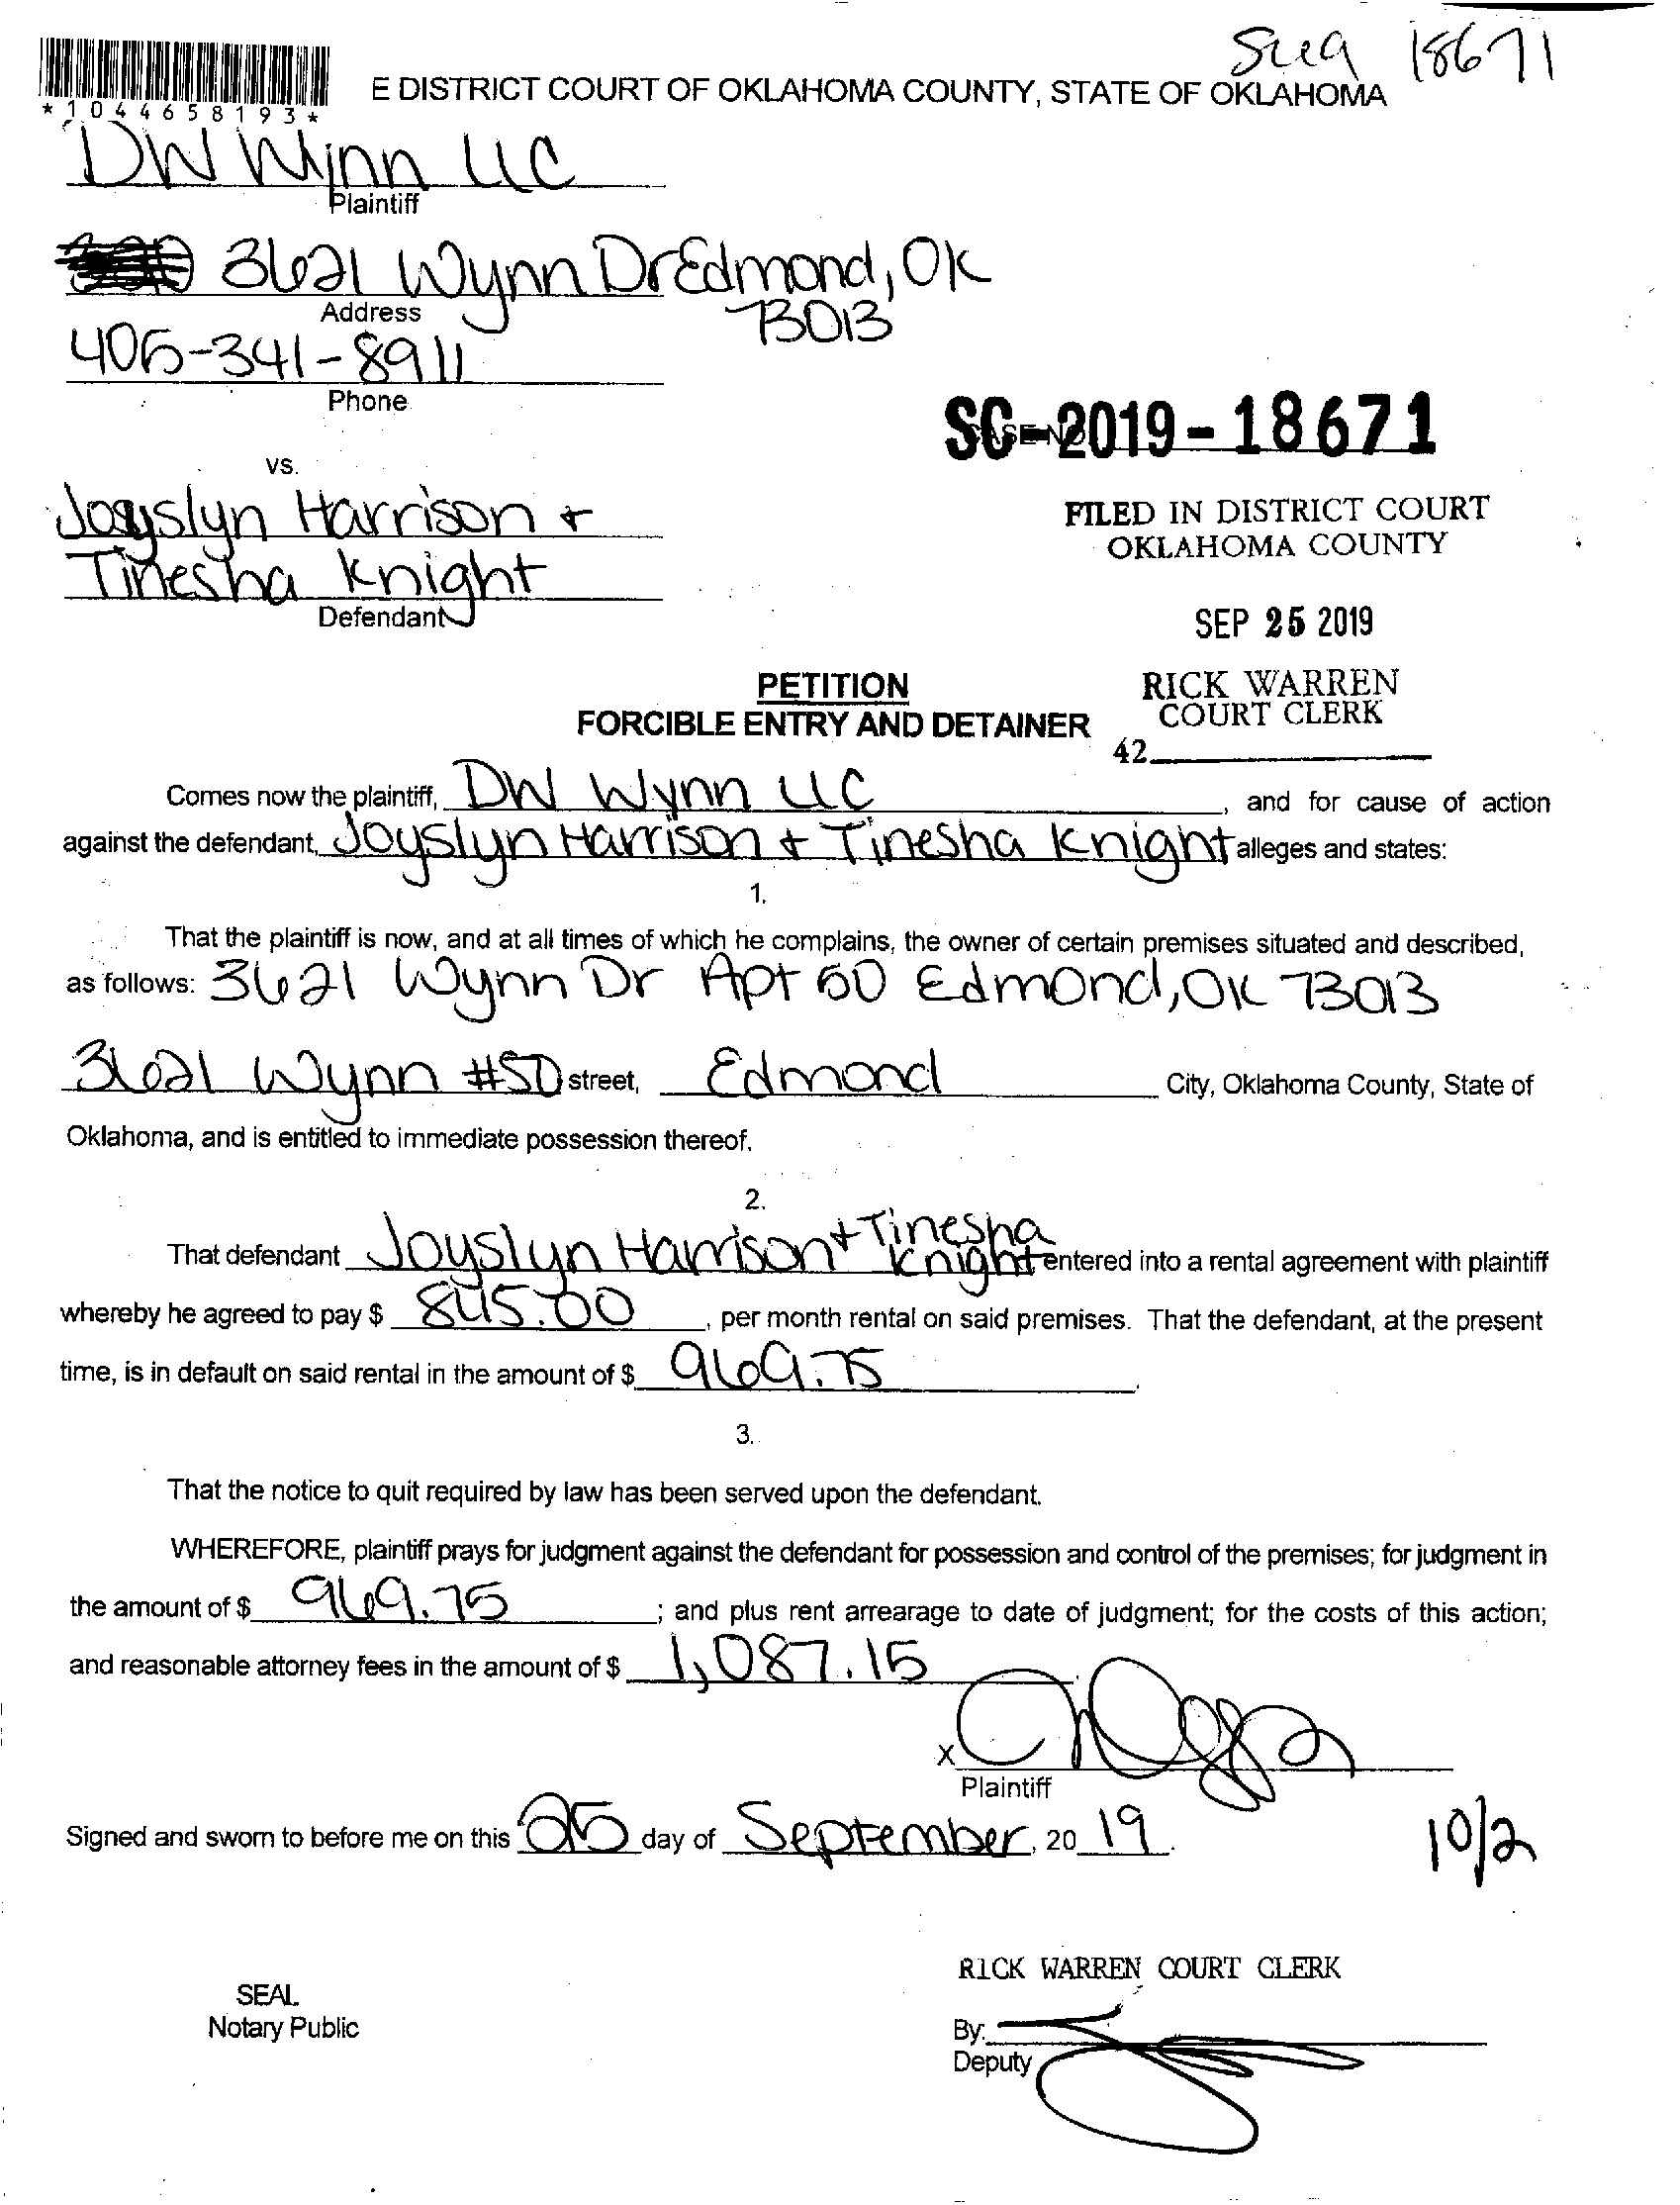 18671
E DISTRICT COURT OF OKLAHOMA COUNTY, STATE OF OKLAHOMA
*1044658193*
DW Wynn LLC
Plaintiff
3621 Wynn Dr Edmond, OK
73013
Address
405-341-8911
Phone
SC-2019-18671
vs.
Joyslyn Harrison +
Tinesha Knight
Defendant
FILED IN DISTRICT COURT
OKLAHOMA COUNTY
SEP 25 2019
RICK WARREN
COURT CLERK
42
PETITION
FORCIBLE ENTRY AND DETAINER
Comes now the plaintiff, DW Wynn LLC, and for cause of action
against the defendant, Joyslyn Harrison + Tinesha Knight alleges and states:
1.
That the plaintiff is now, and at all times of which he complains, the owner of certain premises situated and described,
as follows: 3621 Wynn Dr Apt 50 Edmond, OK 73013
3621 Wynn #50 street, Edmond City, Oklahoma County, State of
Oklahoma, and is entitled to immediate possession thereof.
2.
That defendant Joyslyn Harrison + Tinesha Knight entered into a rental agreement with plaintiff
whereby he agreed to pay $ 845.00, per month rental on said premises. That the defendant, at the present
time, is in default on said rental in the amount of $ 969.75.
3.
That the notice to quit required by law has been served upon the defendant.
WHEREFORE, plaintiff prays for judgment against the defendant for possession and control of the premises; for judgment in
the amount of $ 969.75; and plus rent arrearage to date of judgment; for the costs of this action;
and reasonable attorney fees in the amount of $ 1,087.15.
X
Plaintiff
Signed and sworn to before me on this 25 day of September, 20 19.
10/2
RICK WARREN COURT CLERK
SEAL
Notary Public
By:
Deputy